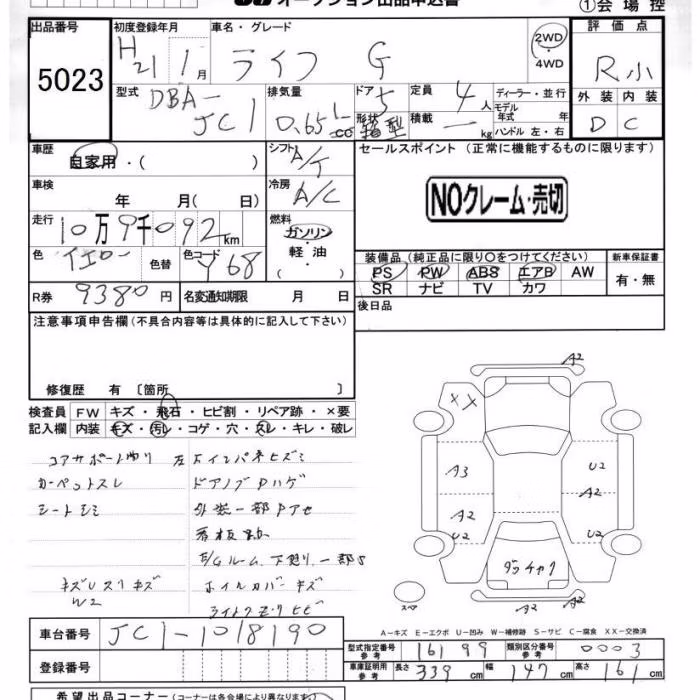 オークション出品申込書
①会場控
出品番号 5023
初度登録年月 H21 1月
車名・グレード ライフ G
2WD ・ 4WD
評価点 R小
型式 DBA-JC1
排気量 0.65L cc
ドア 5
形状 箱型
定員 4人
積載 ー kg
ディーラー・並行
モデル年式 年
ハンドル 左・右
外装 D 内装 C
車歴 自家用・( )
シフト A/T
セールスポイント (正常に機能するものに限ります)
車検 年 月( 日)
冷房 A/C
NOクレーム・売切
走行 10万9千092km
燃料 ガソリン ・ 軽油
色 イエロー 色替 色コード Y68
装備品 (純正品に限り○をつけてください)
新車保証書
PS PW ABS エアB AW
SR ナビ TV カワ
有・無
R券 9380円
名変通知期限 月 日
後日品
注意事項申告欄(不具合内容等は具体的に記入して下さい)
修復歴 有 〔箇所 〕
検査員記入欄
FW キズ・飛石・ヒビ割・リペア跡・×要
内装 キズ・汚レ・コゲ・穴・スレ・キレ・破レ
コアサポート
カーペットスレ
シートシミ
左 インパネヒズミ
ドアノブPハゲ
外装一部Pアセ
看板跡
E/Gルーム、下廻り、一部S
キズU スリキズ
W2
ホイルカバーキズ
ライトクモリヒビ
A2
XX
A3
U2
A2
A2
U2
U2
ダッチャク
スペア
A2
A2
A-キズ E-エクボ U-凹み W-補修跡 S-サビ C-腐食 XX-交換済
車台番号 JC1-1018190
型式指定番号 参考 16199
類別区分番号 参考 0003
登録番号
車庫証明用 参考 長さ 339cm 幅 147cm 高さ 161cm
希望出品コーナー